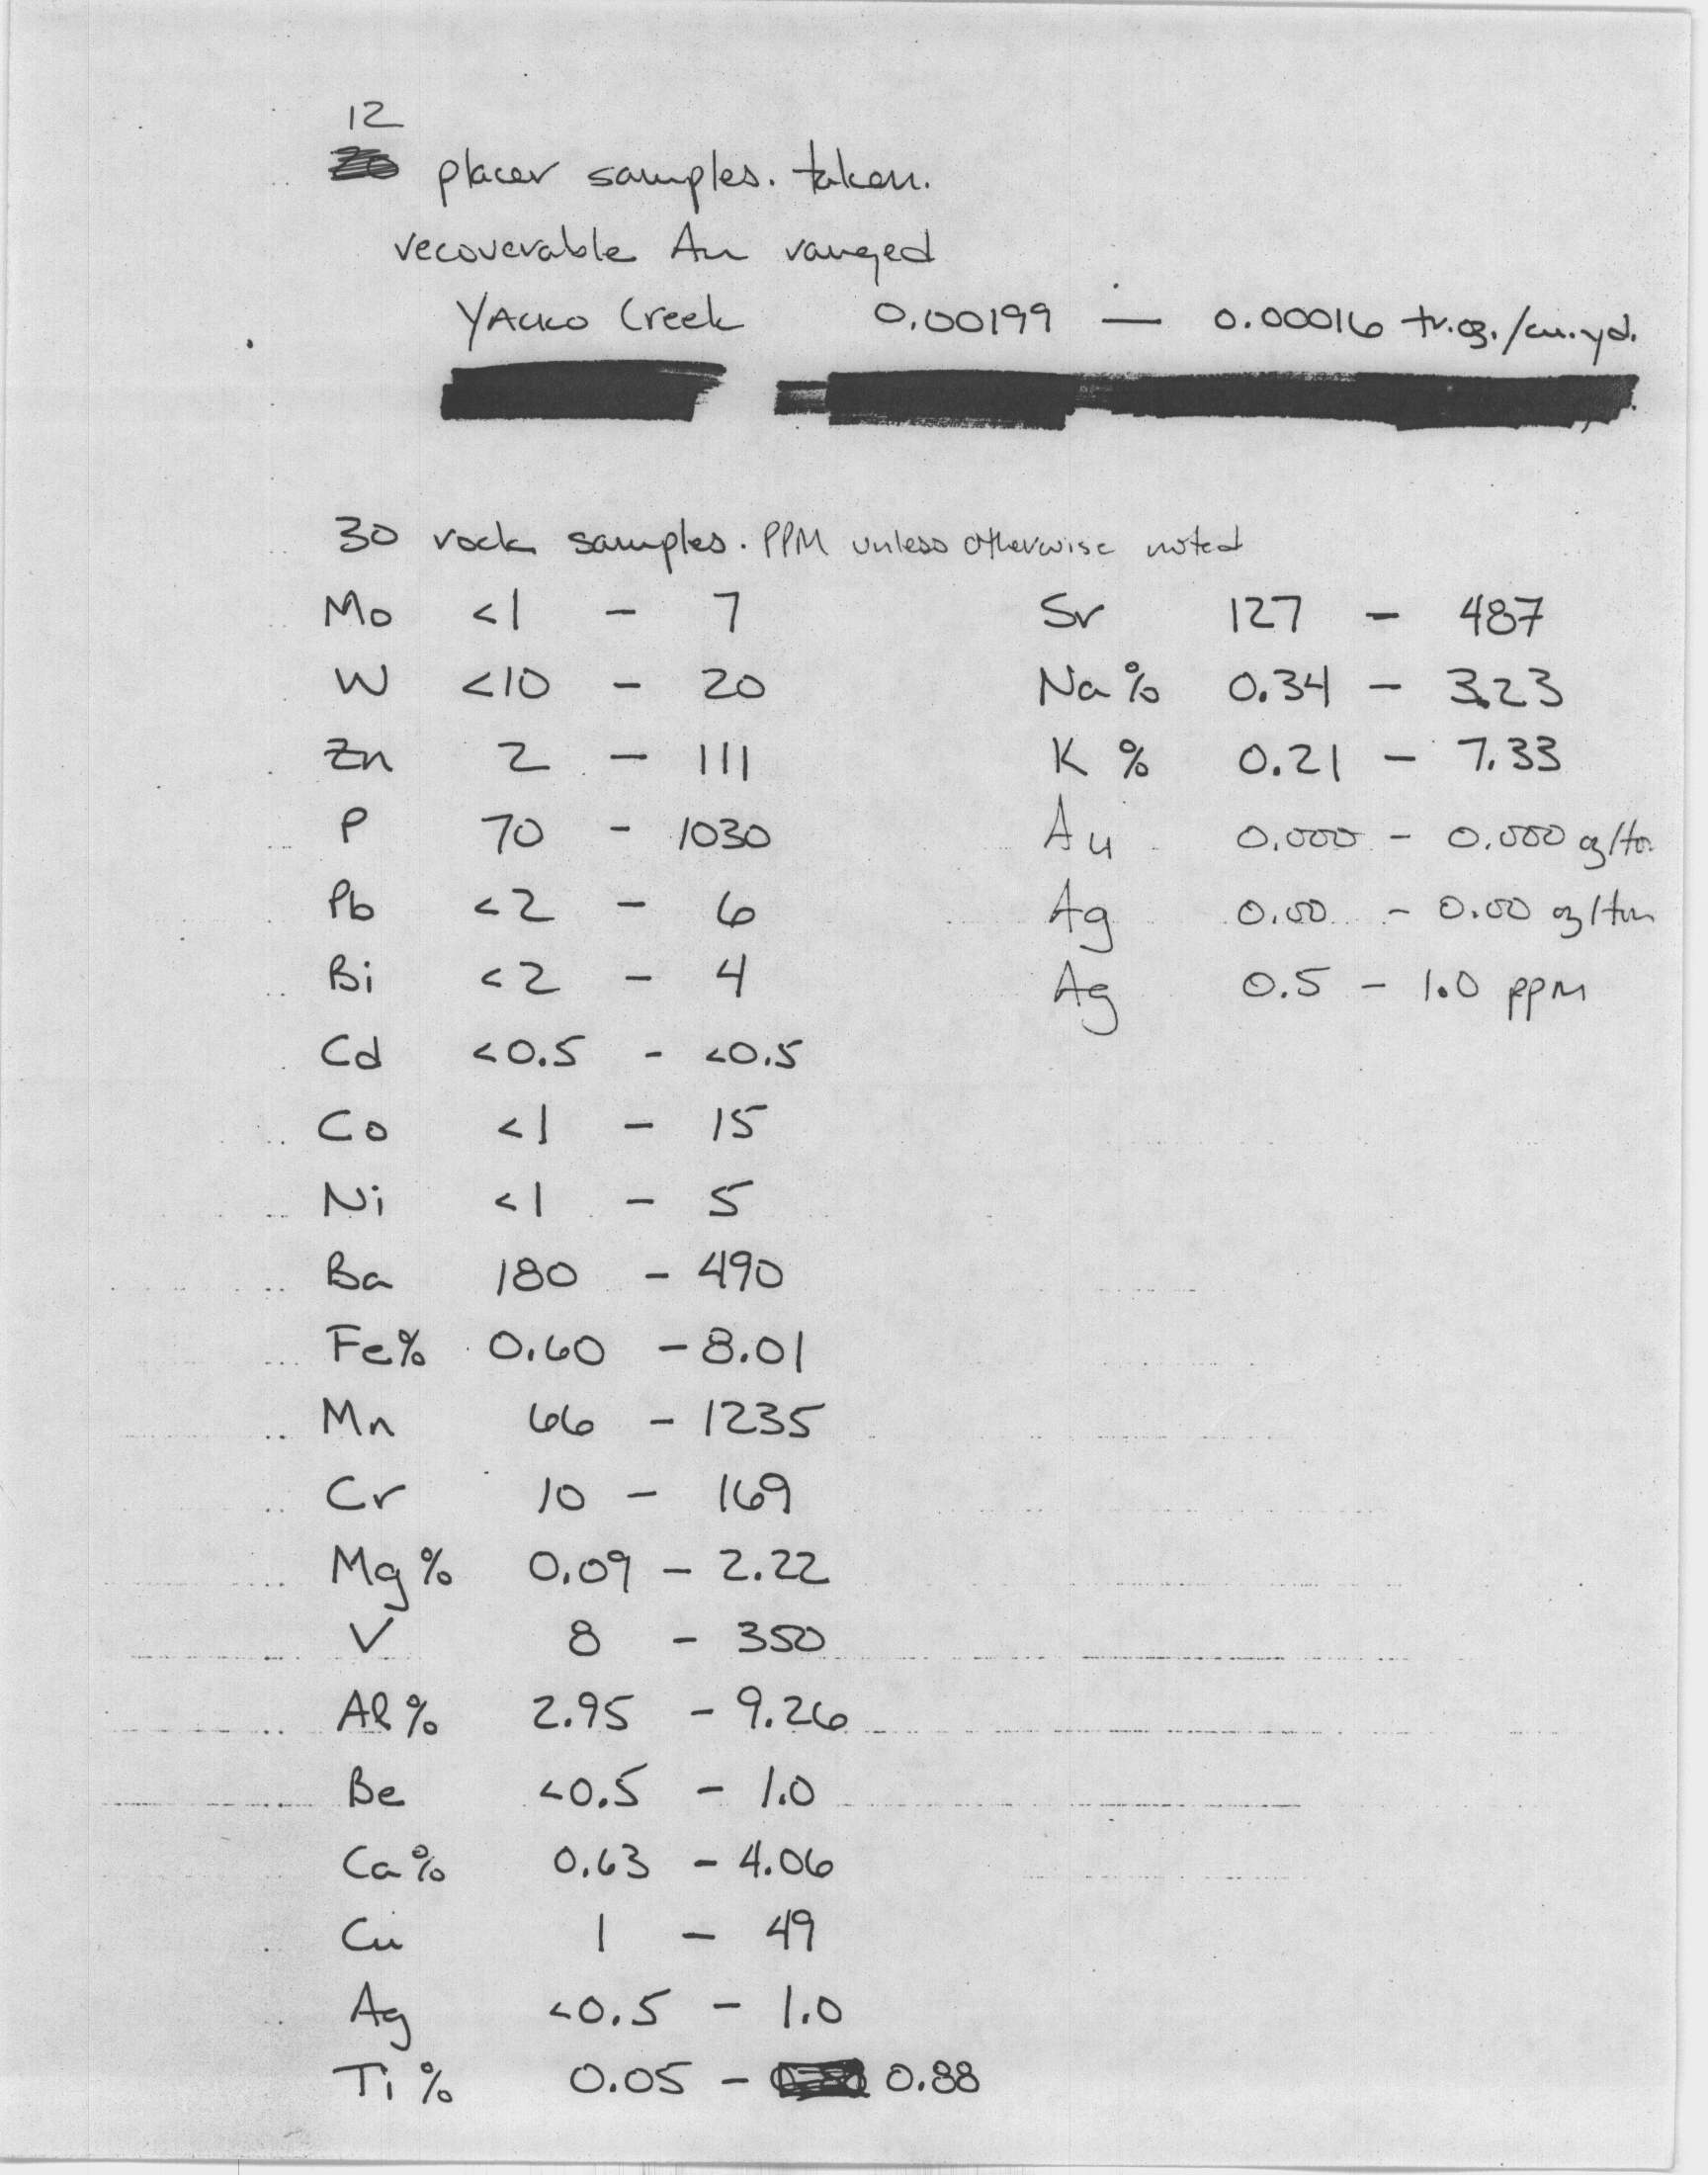 12
placer samples. taken.
recoverable Au ranged
Yacko Creek 0.00199 — 0.00016 tr.oz./cu.yd.
30 rock samples. PPM unless otherwise noted
Mo <1 - 7
W <10 - 20
Zn 2 - 111
P 70 - 1030
Pb <2 - 6
Bi <2 - 4
Cd <0.5 - <0.5
Co <1 - 15
Ni <1 - 5
Ba 180 - 490
Fe% 0.60 - 8.01
Mn 66 - 1235
Cr 10 - 169
Mg% 0.09 - 2.22
V 8 - 350
Al% 2.95 - 9.26
Be <0.5 - 1.0
Ca% 0.63 - 4.06
Cu 1 - 49
Ag <0.5 - 1.0
Ti% 0.05 - 0.88
Sr 127 - 487
Na% 0.34 - 3.23
K % 0.21 - 7.33
Au 0.000 - 0.000 oz/ton
Ag 0.00 - 0.00 oz/ton
Ag 0.5 - 1.0 ppm